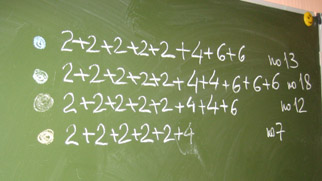 2+2+2+2+2+4+6+6 по 13
2+2+2+2+2+2+4+4+6+6+6 по 18
2+2+2+2+2+4+4+6 по 12
2+2+2+2+2+4 по 7